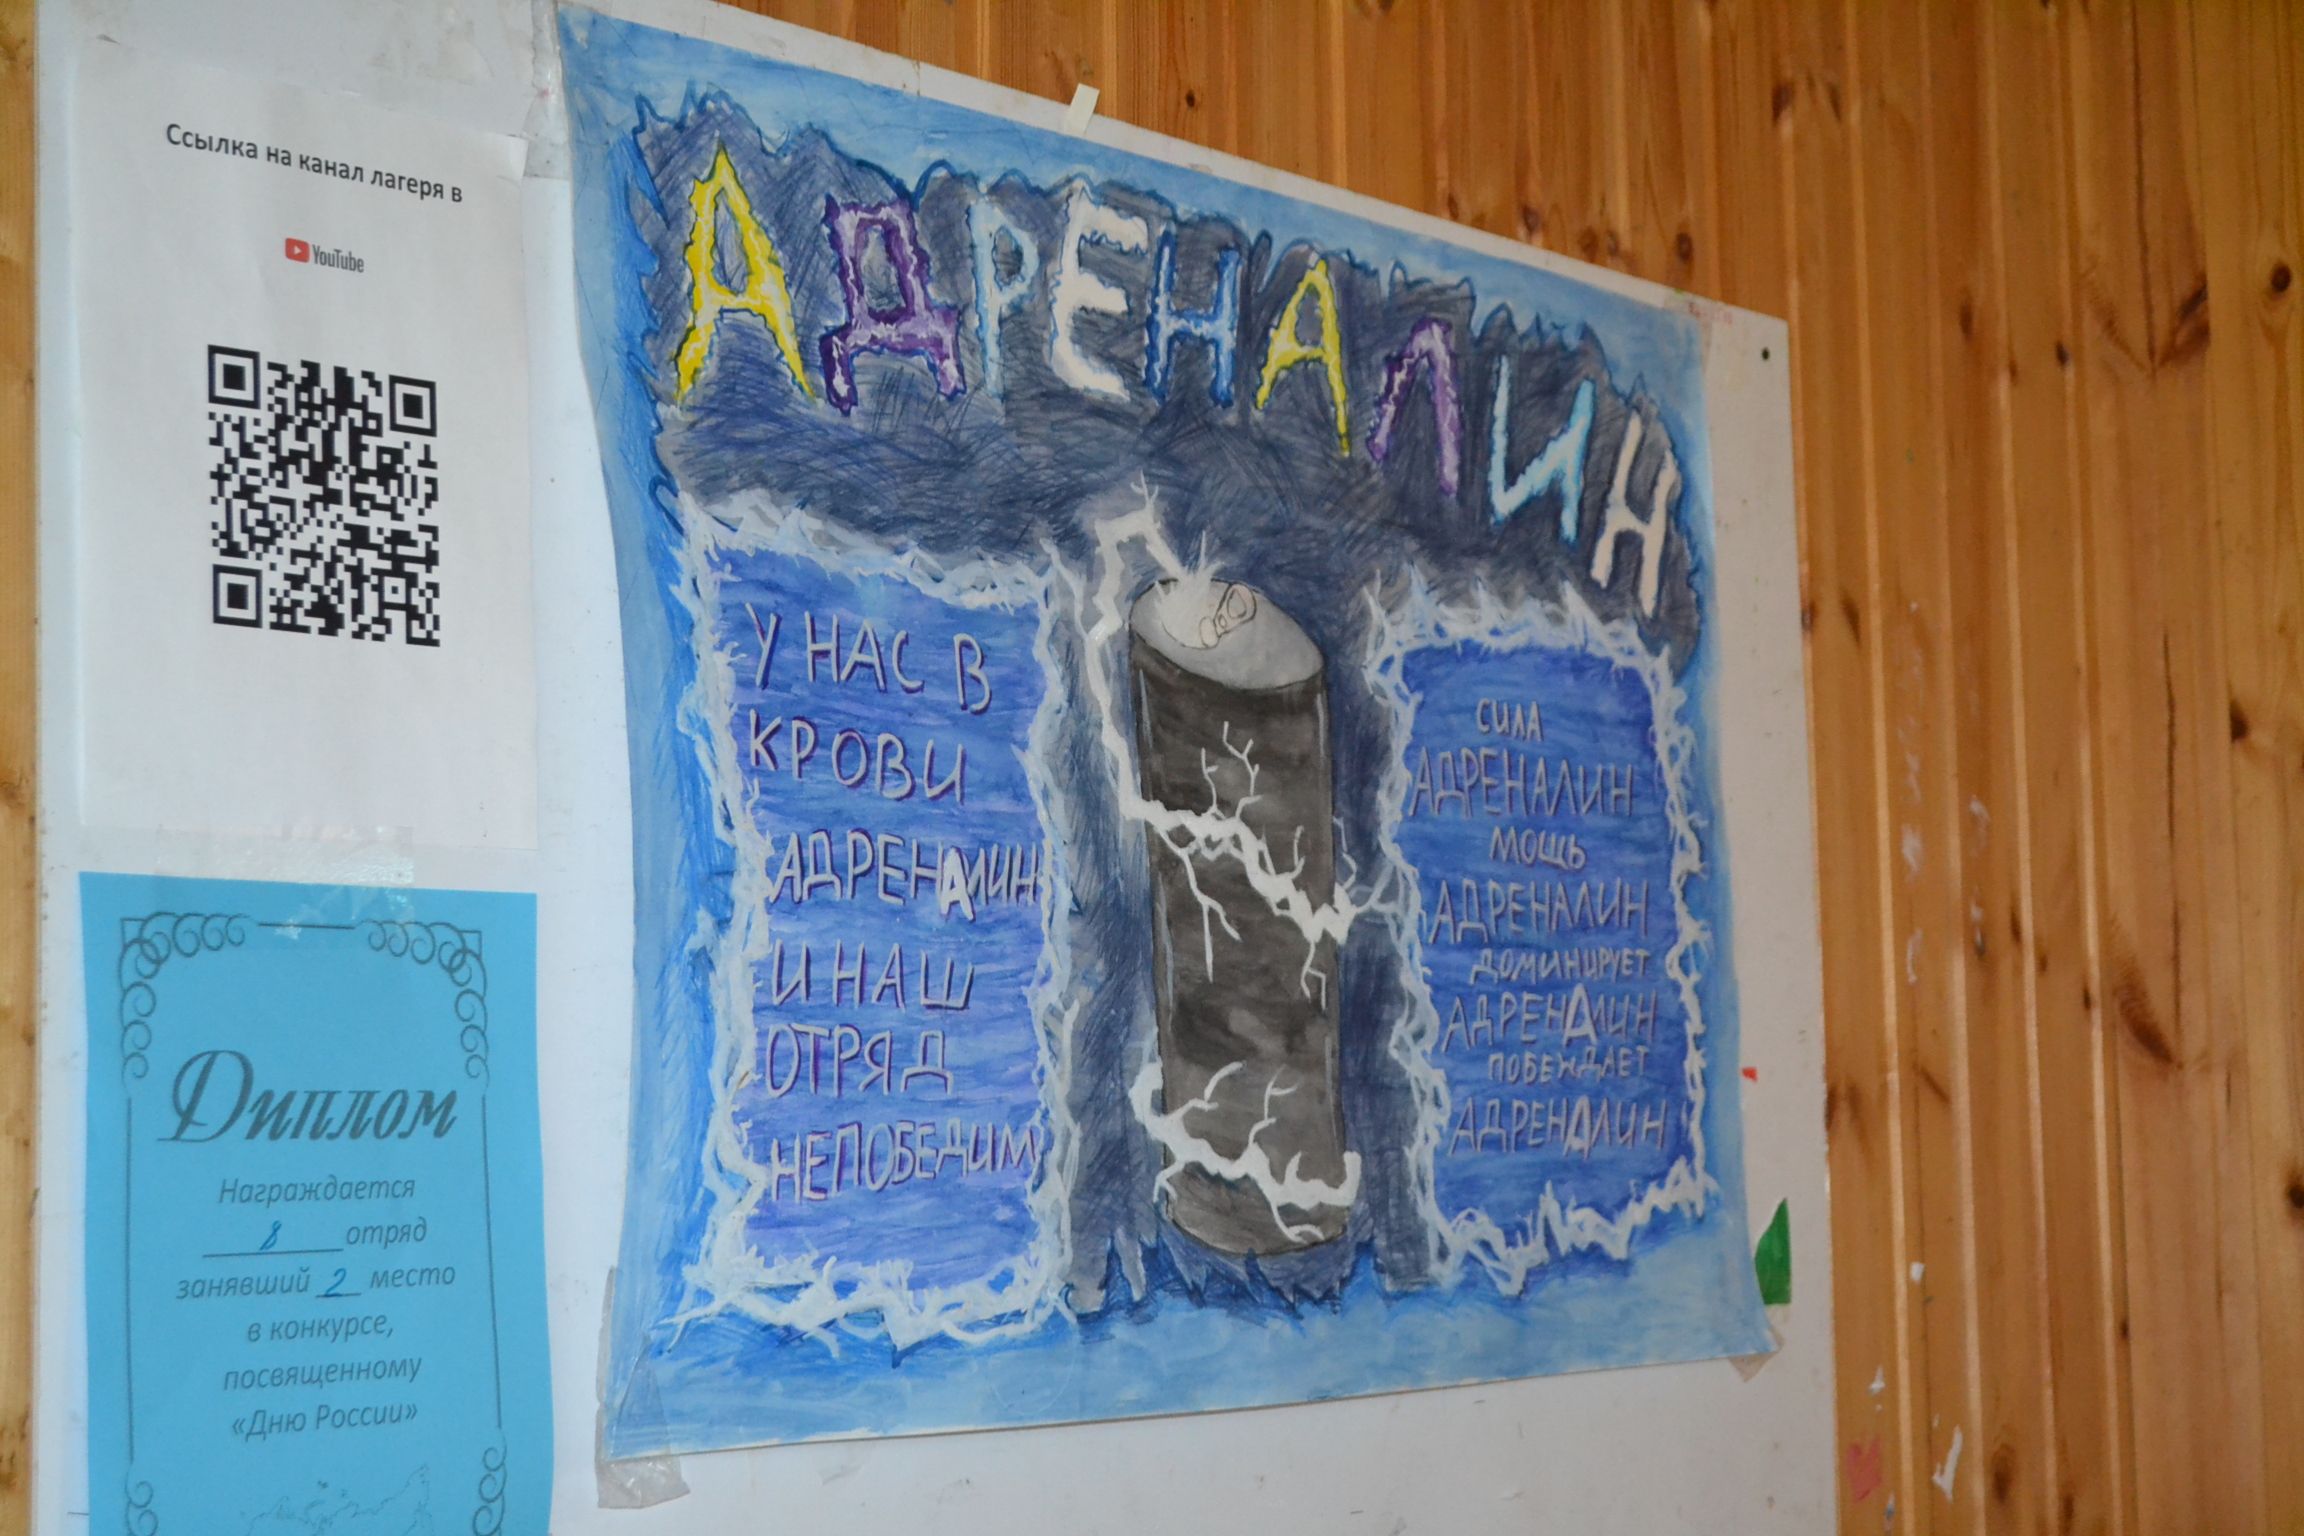 Ссылка на канал лагеря в
YouTube
Диплом
Награждается
8 отряд
занявший 2 место
в конкурсе,
посвященному
«Дню России»
АДРЕНАЛИН
У НАС В
КРОВИ
АДРЕНАЛИН
И НАШ
ОТРЯД
НЕПОБЕДИМ
СИЛА
АДРЕНАЛИН
МОЩЬ
АДРЕНАЛИН
ДОМИНИРУЕТ
АДРЕНАЛИН
ПОБЕЖДАЕТ
АДРЕНАЛИН